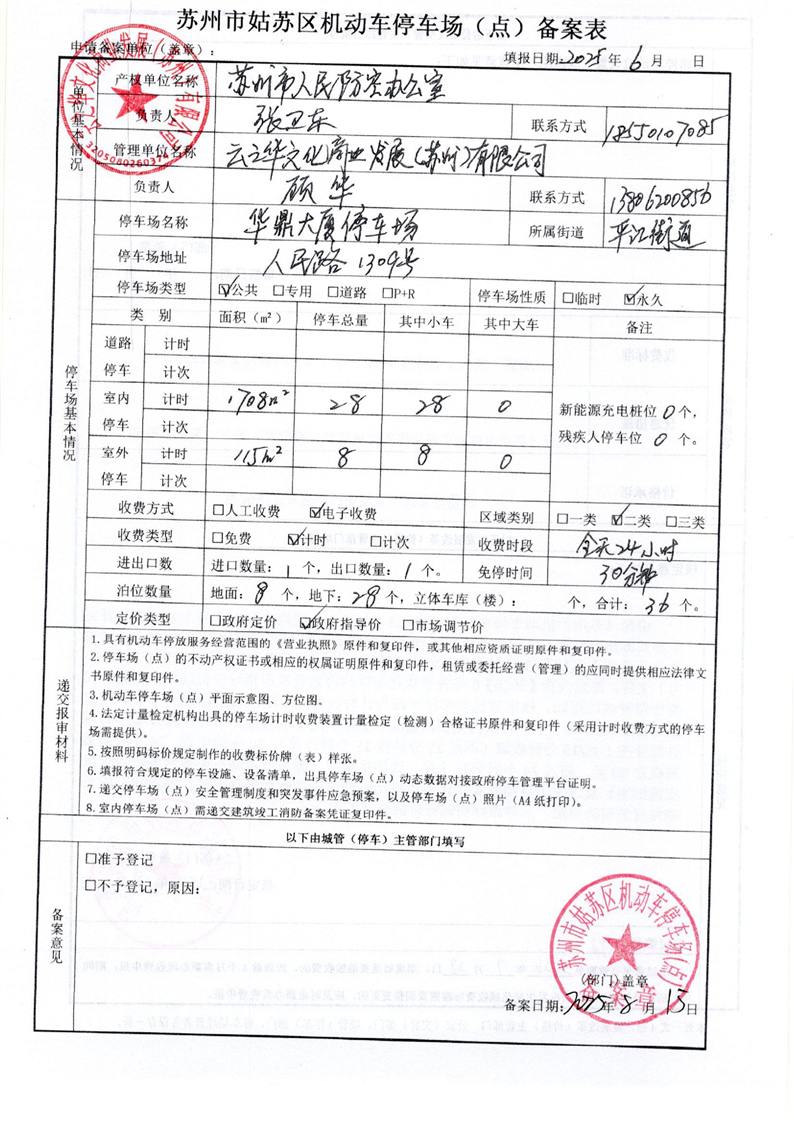 苏州市姑苏区机动车停车场（点）备案表
申请备案单位（盖章）： 填报日期:2025年6月 日
单位基本情况
产权单位名称 苏州市人民防空办公室
负责人 张卫东 联系方式 18550107085
管理单位名称 云之华文化商业发展(苏州)有限公司
负责人 顾华 联系方式 13806200856
停车场基本情况
停车场名称 华鼎大厦停车场 所属街道 平江街道
停车场地址 人民路1309号
停车场类型 ☑公共 □专用 □道路 □P+R 停车场性质 □临时 ☑永久
类 别 面积（m²） 停车总量 其中小车 其中大车 备注
道路停车 计时
计次
室内停车 计时 1708m² 28 28 0
计次
室外停车 计时 115m² 8 8 0
计次
新能源充电桩位 0 个，
残疾人停车位 0 个。
收费方式 □人工收费 ☑电子收费 区域类别 □一类 ☑二类 □三类
收费类型 □免费 ☑计时 □计次 收费时段 全天24小时
进出口数 进口数量：1 个，出口数量：1 个。 免停时间 30分钟
泊位数量 地面：8 个，地下：28 个，立体车库（楼）： 个，合计：36 个。
定价类型 □政府定价 ☑政府指导价 □市场调节价
递交报审材料
1.具有机动车停放服务经营范围的《营业执照》原件和复印件，或其他相应资质证明原件和复印件。
2.停车场（点）的不动产权证书或相应的权属证明原件和复印件，租赁或委托经营（管理）的应同时提供相应法律文
书原件和复印件。
3.机动车停车场（点）平面示意图、方位图。
4.法定计量检定机构出具的停车场计时收费装置计量检定（检测）合格证书原件和复印件（采用计时收费方式的停车
场需提供）。
5.按照明码标价规定制作的收费标价牌（表）样张。
6.填报符合规定的停车设施、设备清单，出具停车场（点）动态数据对接政府停车管理平台证明。
7.递交停车场（点）安全管理制度和突发事件应急预案，以及停车场（点）照片（A4纸打印）。
8.室内停车场（点）需递交建筑竣工消防备案凭证复印件。
以下由城管（停车）主管部门填写
备案意见
□准予登记
□不予登记，原因:
苏州市姑苏区机动车停车场(点)
备案章
(部门)盖章
备案日期:2025年8月15日
云之华文化商业发展(苏州)有限公司